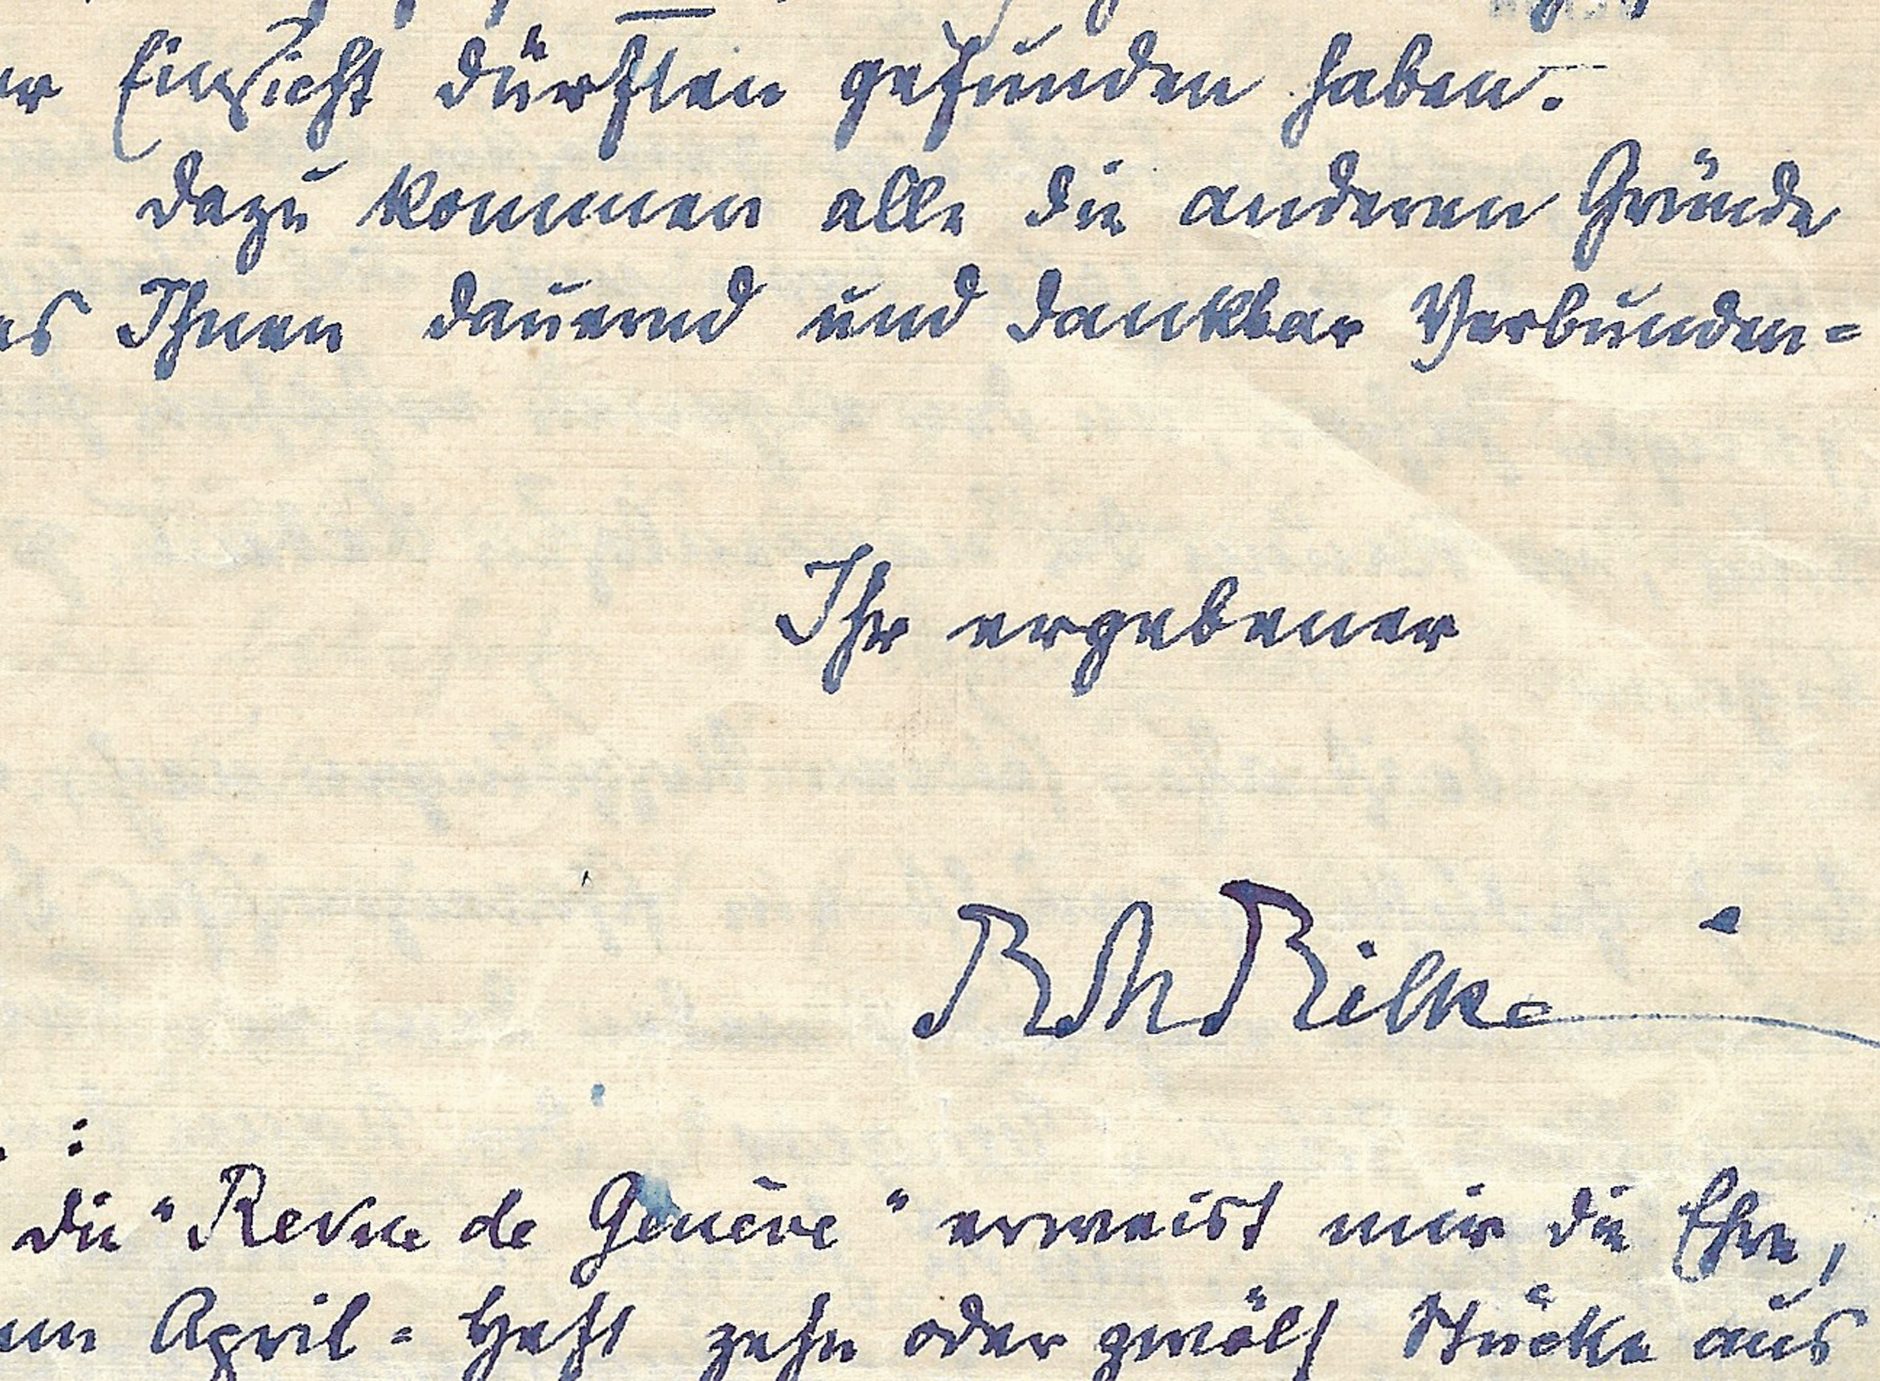 er Einsicht dürften gefunden haben.
Dazu kommen alle die anderen Gründe
es Ihnen dauernd und dankbar Verbunden=
Ihr ergebener
RMRilke
. :
Die "Revue de Genève" erweist mir die Ehre,
um April-Heft zehn oder zwölf Stücke aus